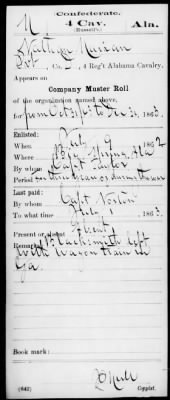 Confederate.
N 4 Cav. Ala.
(Russell's.)
Marian
Pvt., Co. , 4 Reg't Alabama Cavalry.
Appears on
Company Muster Roll
of the organization named above,
for from Oct 31st to Dec 31, 1863.
Enlisted:
When July 9, 1862
Where Big Spring, Ala
By whom
Period three years or during the war
Last paid:
By whom Capt Norton
To what time July 1, 1863.
Present or absent Absent
Remarks: Blacksmith left
with Wagon train in
Ga.
Book mark:
(642) Copyist.